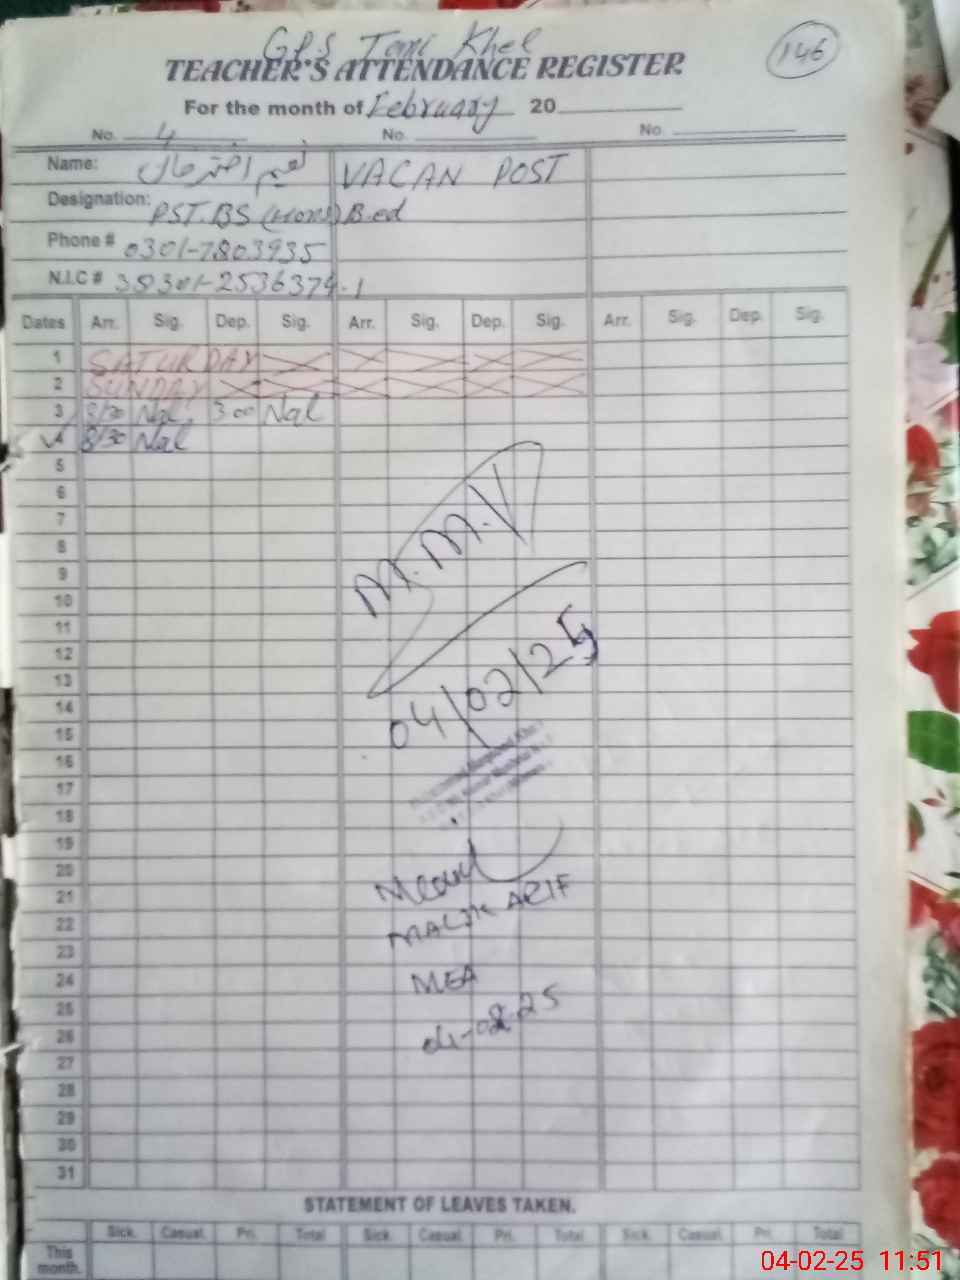 GPS Tomi Khel
146
TEACHER'S ATTENDANCE REGISTER
For the month of February 20
No. 4 No. No
Name: نعیم اختر خان VACAN POST
Designation: PST. BS (Hons) B.ed
Phone # 0301-7803935
N.I.C # 38301-2536379-1
Dates Arr. Sig. Dep. Sig. Arr. Sig. Dep. Sig. Arr. Sig. Dep. Sig.
1 SATURDAY
2 SUNDAY
3 8/30 Nal 3 00 Nal
4 8/30 Nal
5
6
7
8
9
10
11
12
13
14
15
16
17
18
19
20
21
22
23
24
25
26
27
28
29
30
31
M.M.V
04/02/25
MALIK ARIF
MEA
04-02-25
STATEMENT OF LEAVES TAKEN.
Sick. Casual. Pri. Total Sick. Casual. Pri. Total Sick. Casual. Pri. Total
This month.
04-02-25 11:51